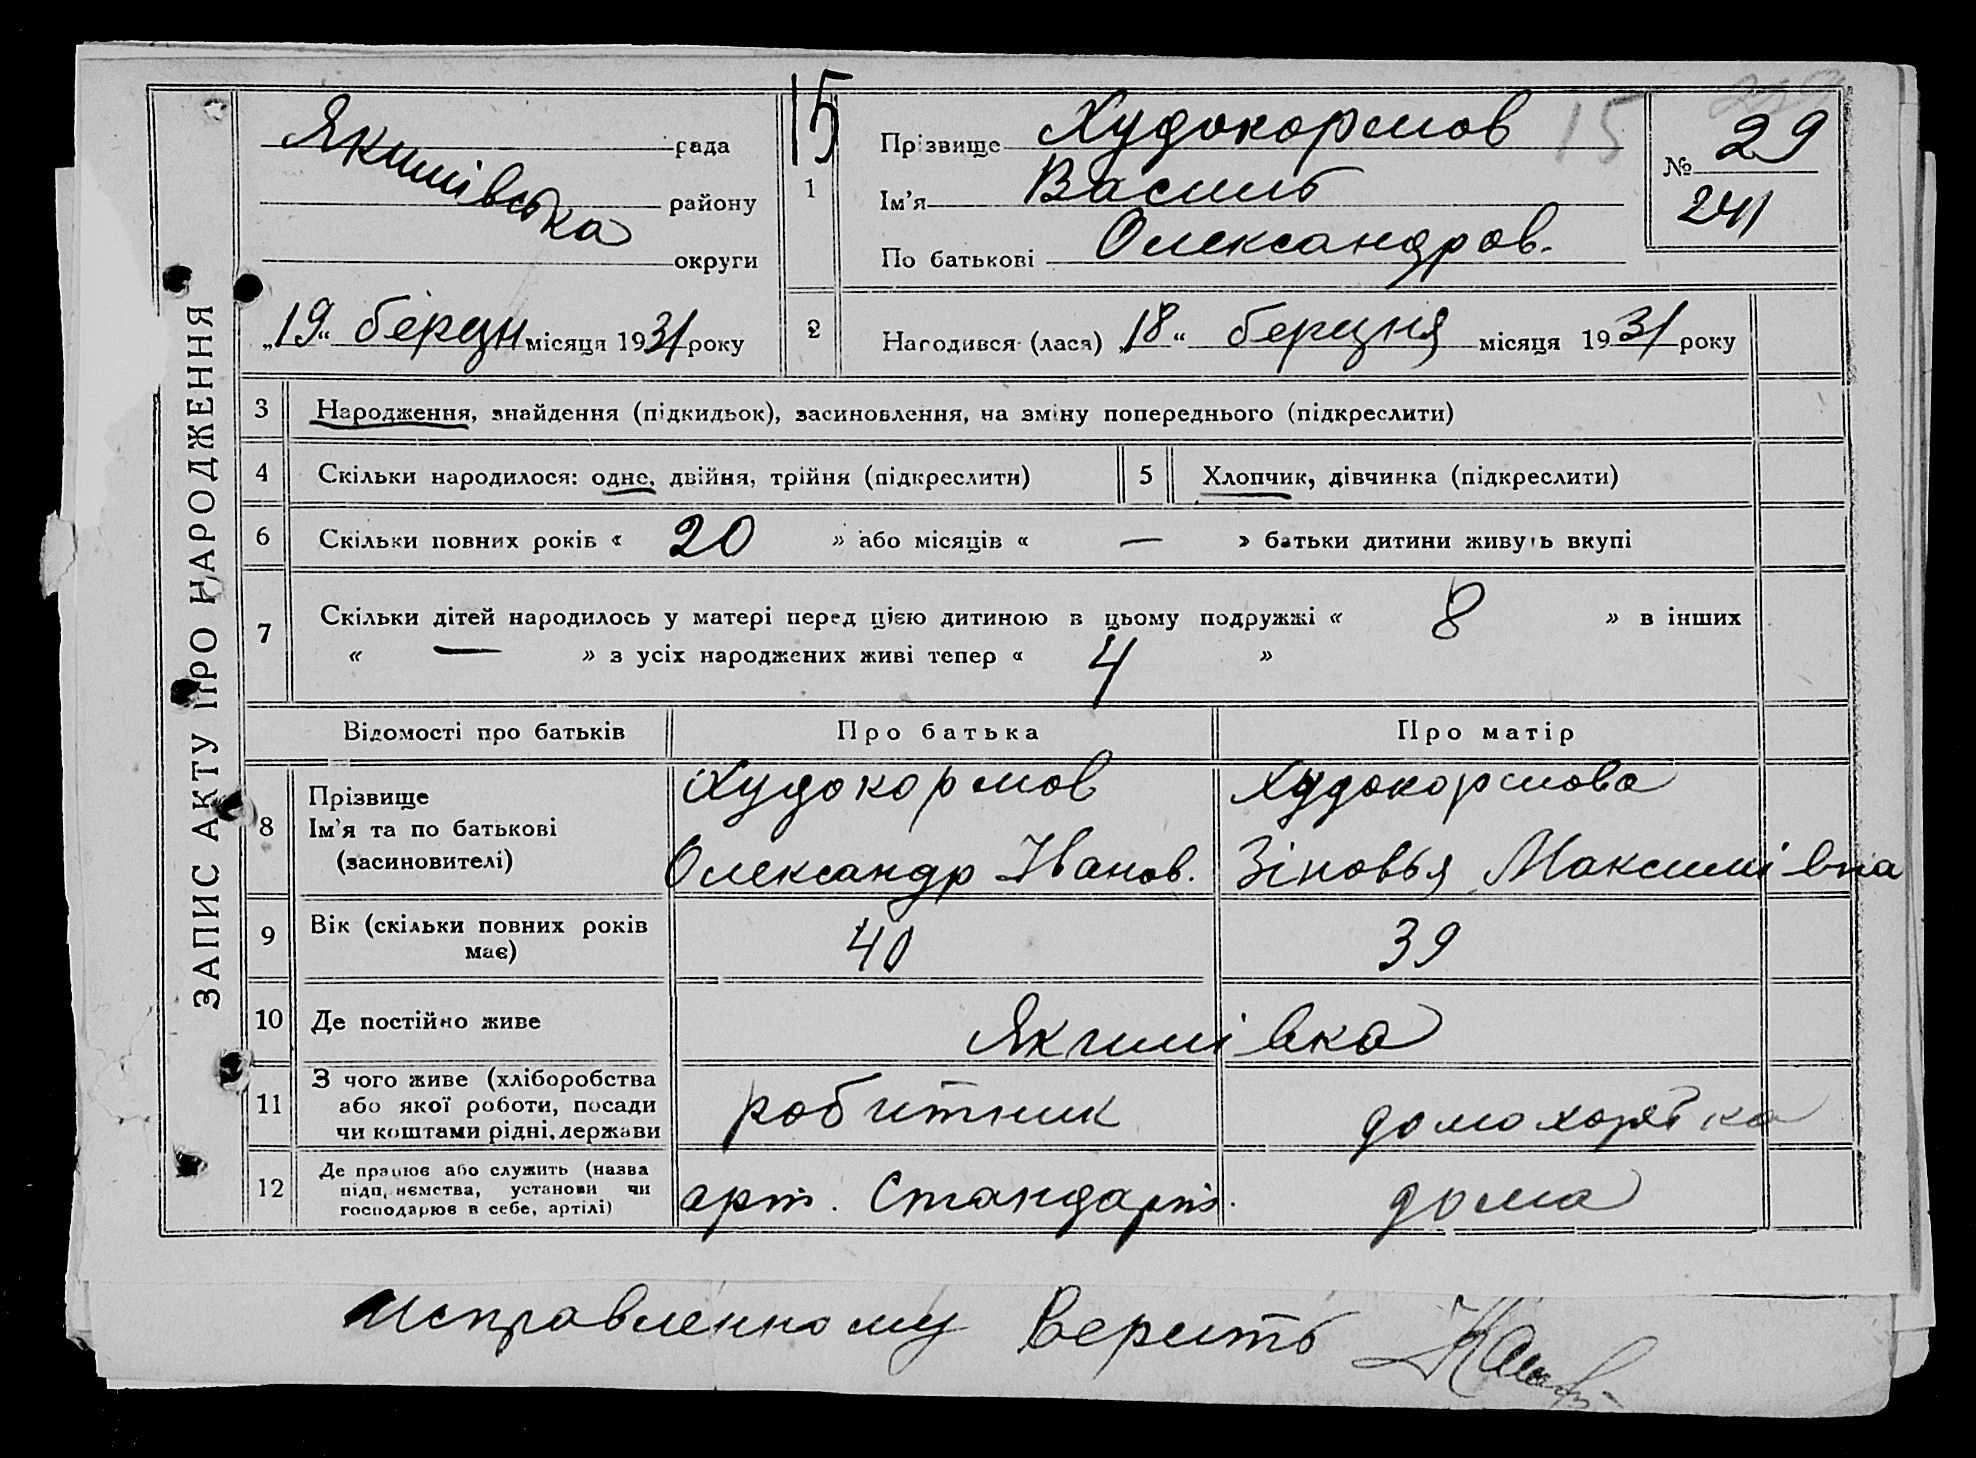 ЗАПИС АКТУ ПРО НАРОДЖЕННЯ
Якимівська
рада
району
округи
„19“ березн місяця 1931 року
15
15
1
Прізвище Худокормов
Ім'я Василь
По батькові Олександров.
№ 29
241
2
Народився (лася) „18“ березня місяця 1931 року
3 Народження, знайдення (підкидьок), засиновлення, на зміну попереднього (підкреслити)
4 Скільки народилося: одне, двійня, трійня (підкреслити)
5 Хлопчик, дівчинка (підкреслити)
6 Скільки повних років « 20 » або місяців « — » батьки дитини живуть вкупі
7 Скільки дітей народилось у матері перед цією дитиною в цьому подружжі « 8 » в інших
« — » з усіх народжених живі тепер « 4 »
Відомості про батьків Про батька Про матір
8 Прізвище
Ім'я та по батькові
(засиновителі)
Худокормов
Олександр Іванов.
Худокормова
Зіновья Максимівна
9 Вік (скільки повних років
має)
40 39
10 Де постійно живе Якимівка
11 З чого живе (хліборобства
або якої роботи, посади
чи коштами рідні, держави
робитник домохорятка
12 Де працює або служить (назва
підприємства, установи чи
господарює в себе, артілі)
арт. Стандарт. дома
исправленному верить